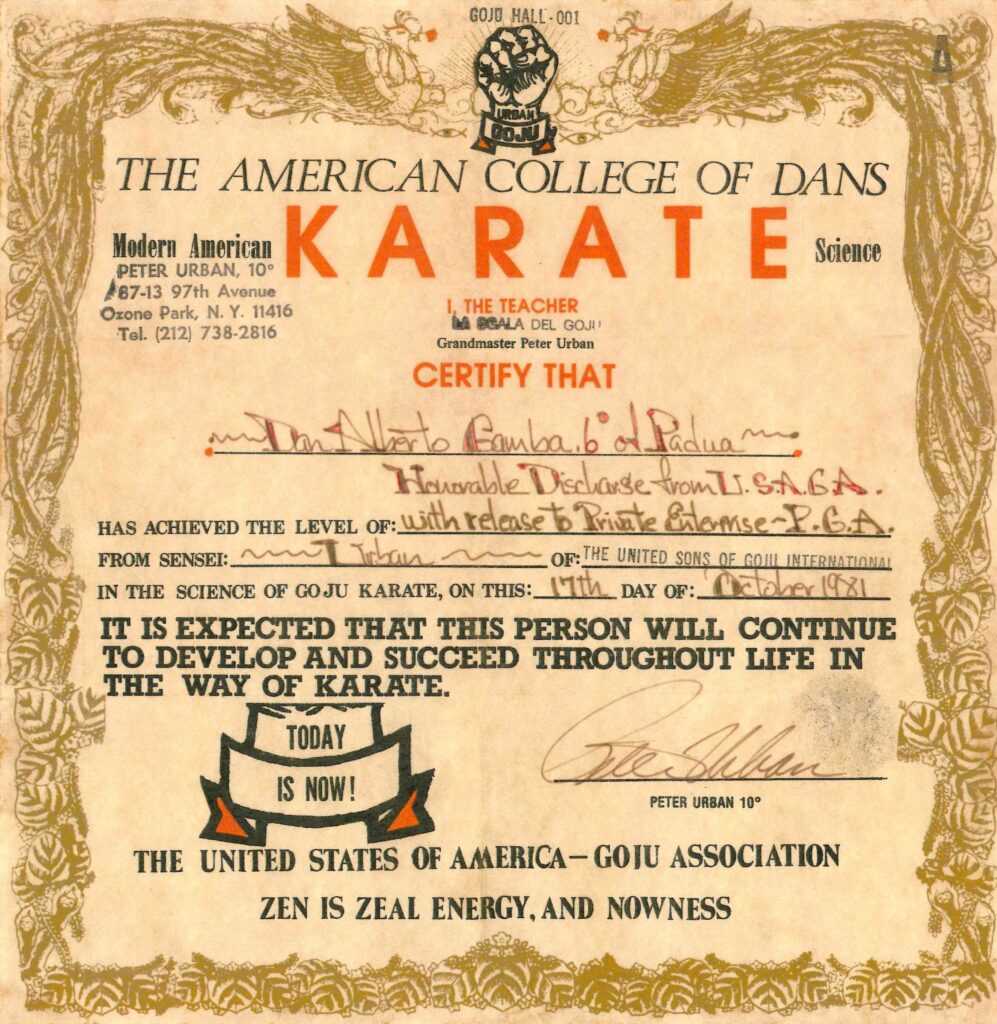 GOJU HALL-001
A
URBAN
GOJU
THE AMERICAN COLLEGE OF DANS
KARATE
Modern American
Science
PETER URBAN, 10°
87-13 97th Avenue
Ozone Park, N. Y. 11416
Tel. (212) 738-2816
I, THE TEACHER
LA SCALA DEL GOJU
Grandmaster Peter Urban
CERTIFY THAT
Dan Alberto Gamba, 6° of Padua
Honorable Discharge from U.S.A.G.A.
HAS ACHIEVED THE LEVEL OF: with release to Private Enterprise - P.G.A.
FROM SENSEI: Urban OF: THE UNITED SONS OF GOJU INTERNATIONAL
IN THE SCIENCE OF GOJU KARATE, ON THIS: 17th DAY OF: October 1981
IT IS EXPECTED THAT THIS PERSON WILL CONTINUE
TO DEVELOP AND SUCCEED THROUGHOUT LIFE IN
THE WAY OF KARATE.
TODAY
IS NOW!
Peter Urban
PETER URBAN 10°
THE UNITED STATES OF AMERICA—GOJU ASSOCIATION
ZEN IS ZEAL ENERGY, AND NOWNESS